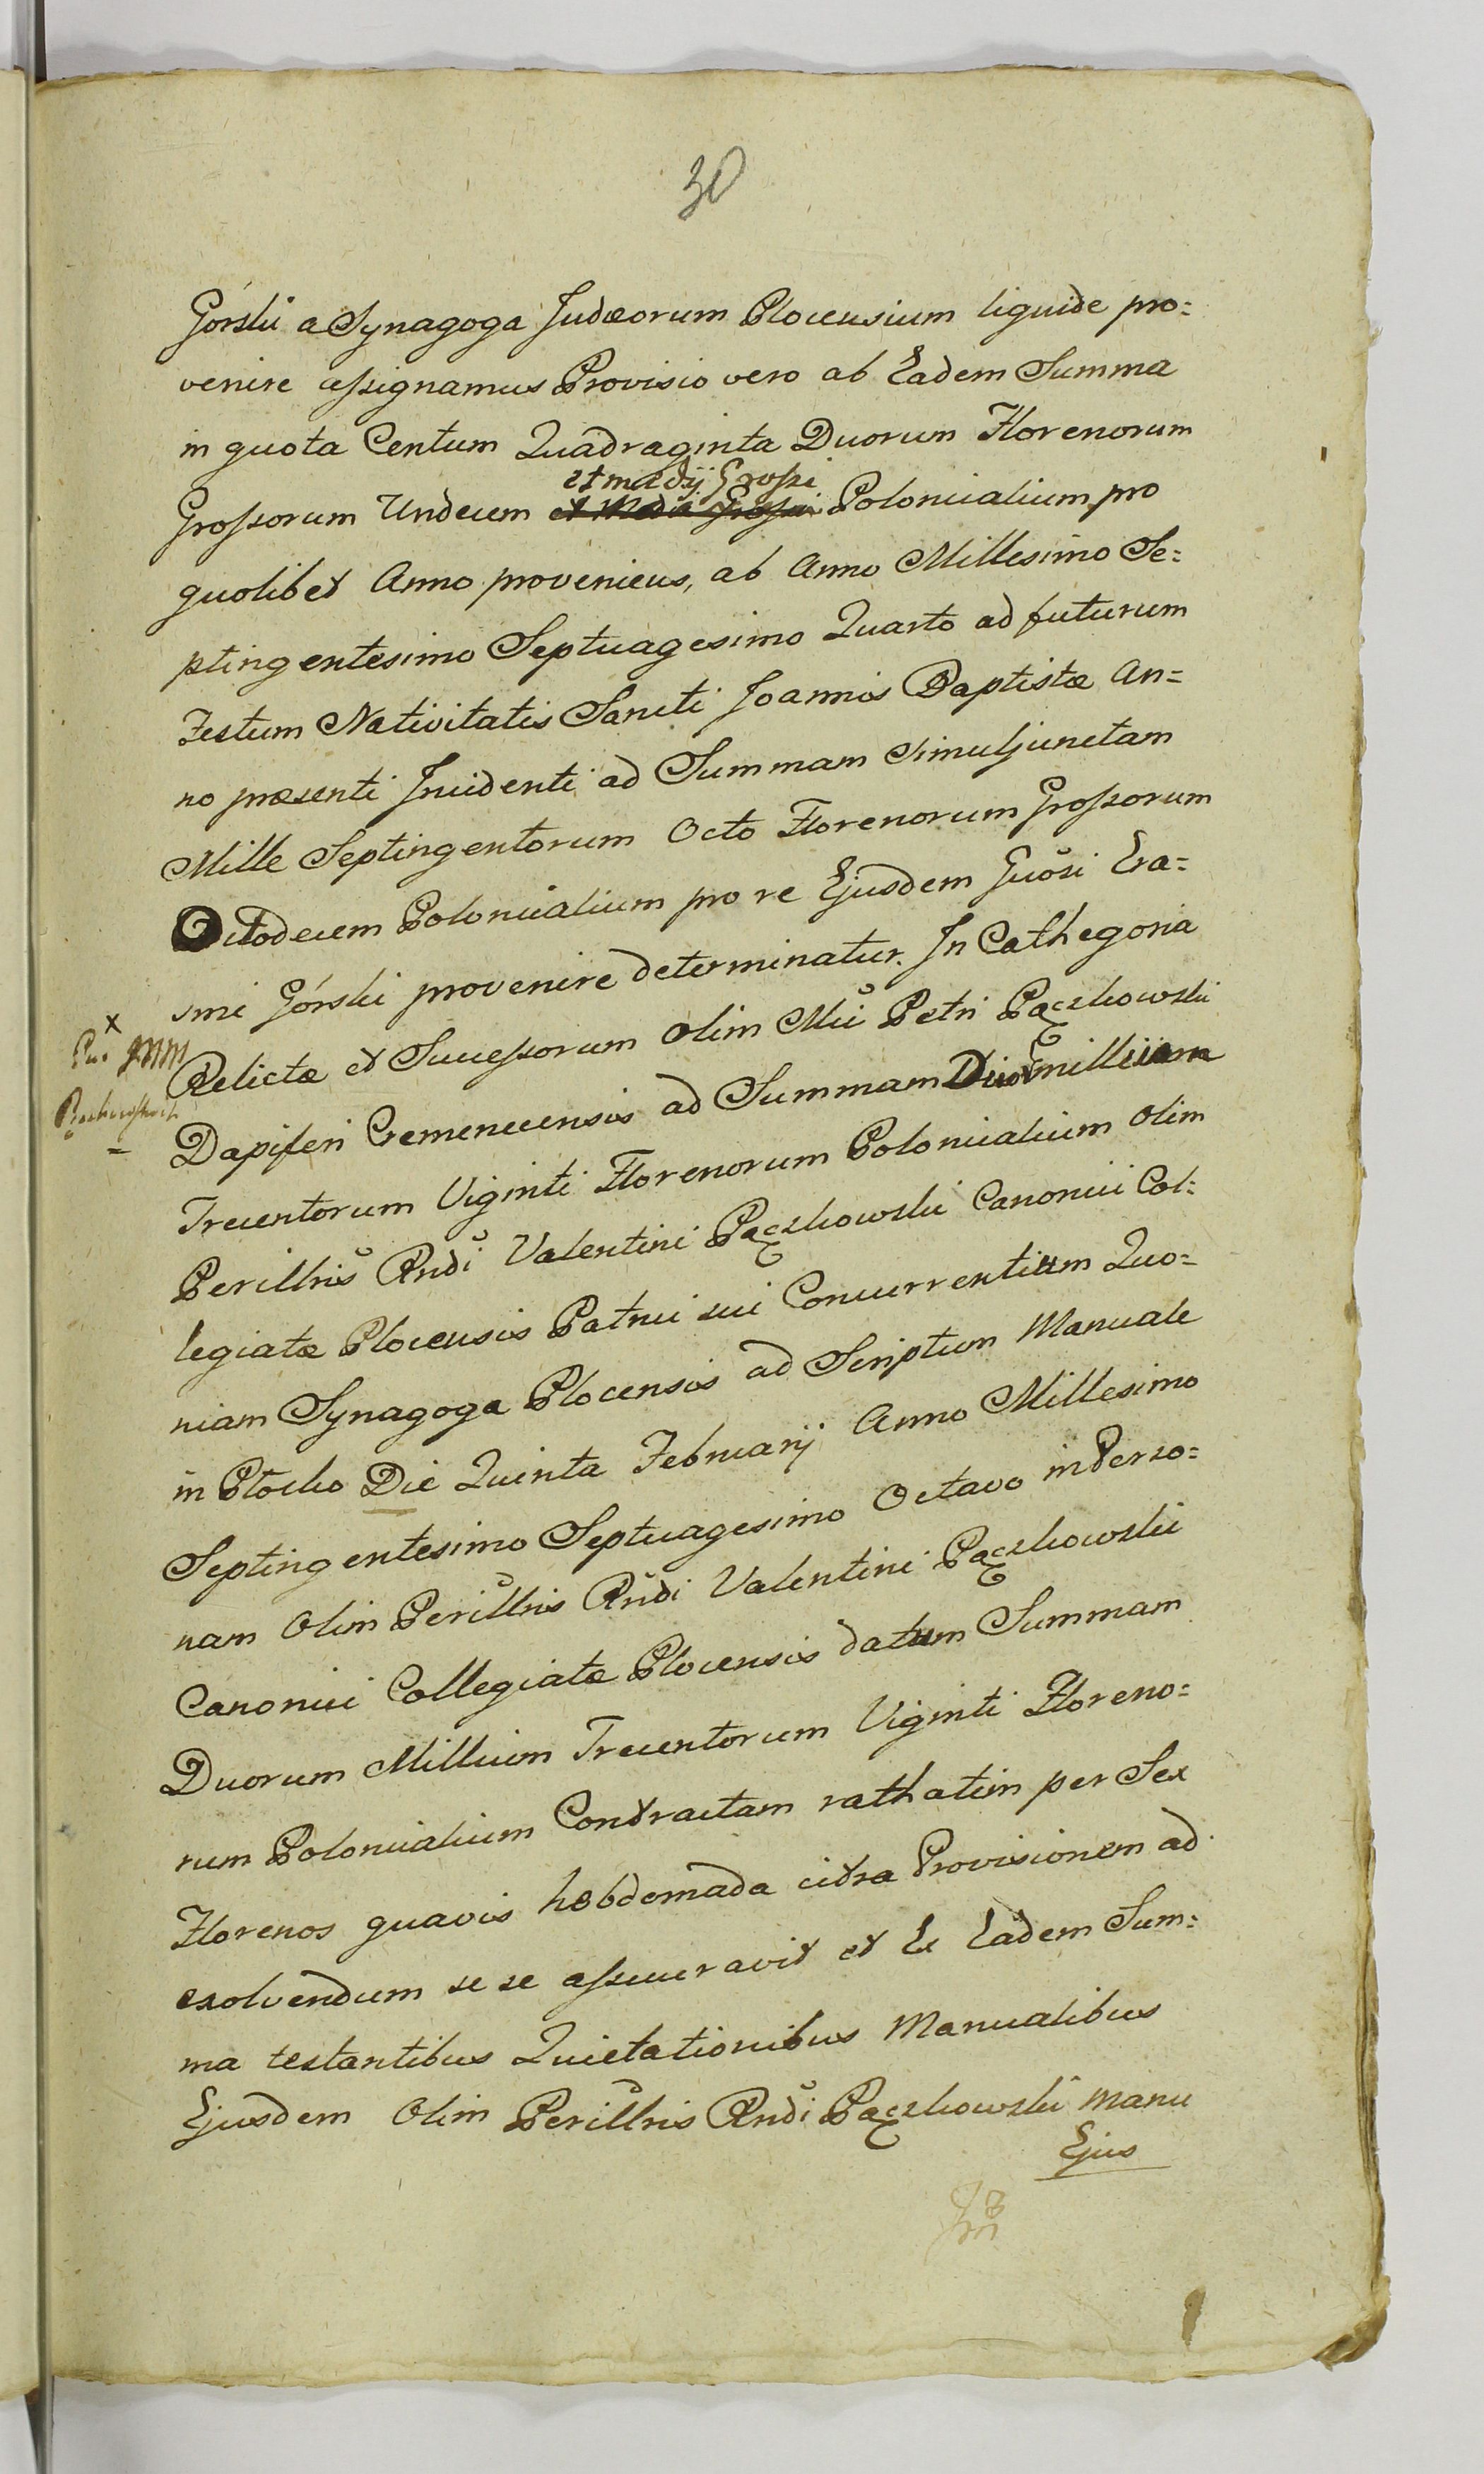 30
Górski a Synagoga Judæorum Plocensium liquide pro=
venire assignamus Provisio vero ab Eadem Summa
in quota Centum Quadraginta Duorum Florenorum
et medij Grossi
Grossorum Undecim et Medii Grossi Polonicalium pro
quolibet Anno proveniens, ab Anno Millesimo Se=
ptingentesimo Septuagesimo Quarto ad futurum
Festum Nativitatis Sancti Joannis Baptistæ An=
no præsenti Incidenti ad Summam simuljunctam
Mille Septingentorum Octo Florenorum Grossorum
Octodecem Polonicalium pro re Ejusdem Gnosi Era=
smi Górski provenire determinatur. In Cathegoria
Relictæ et Successorum olim Mci Petri Pączkowski
Dapiferi Cremenecensis ad Summam Duor millium
Trecentorum Viginti Florenorum Polonicalium olim
Perillris Rndi Valentini Pączkowski Canonici Col=
legiatæ Plocensis Patrui sui Concurrentium Quo=
niam Synagoga Plocensis ad Scriptum Manuale
in Płocko Die Quinta Februarij Anno Millesimo
Septingentesimo Septuagesimo Octavo in Perso=
nam Olim Perillris Rndi Valentini Pączkowski
Canonici Collegiatæ Plocensis datum Summam
Duorum Millium Trecentorum Viginti Floreno=
rum Polonicalium Contractam rathatim per Sex
Florenos quavis hebdomada citra Provisionem ad
exolvendum se se assecuravit et Ex Eadem Sum=
ma testantibus Quietationibus Manualibus
Ejusdem Olim Perillris Rndi Pączkowski Manu
Ejus